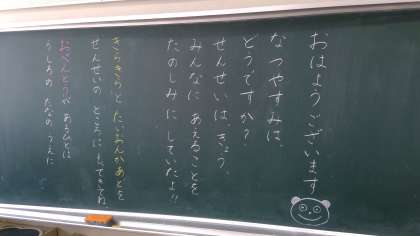 おはようございます
なつやすみは、
どうですか？
せんせいは、きょう、
みんなに あえることを
たのしみに していたよ!!
きらきらと たいけんかあどを
せんせいの ところに もってきてね。
おべんとうや あるひとは
うしろの たなの うえに